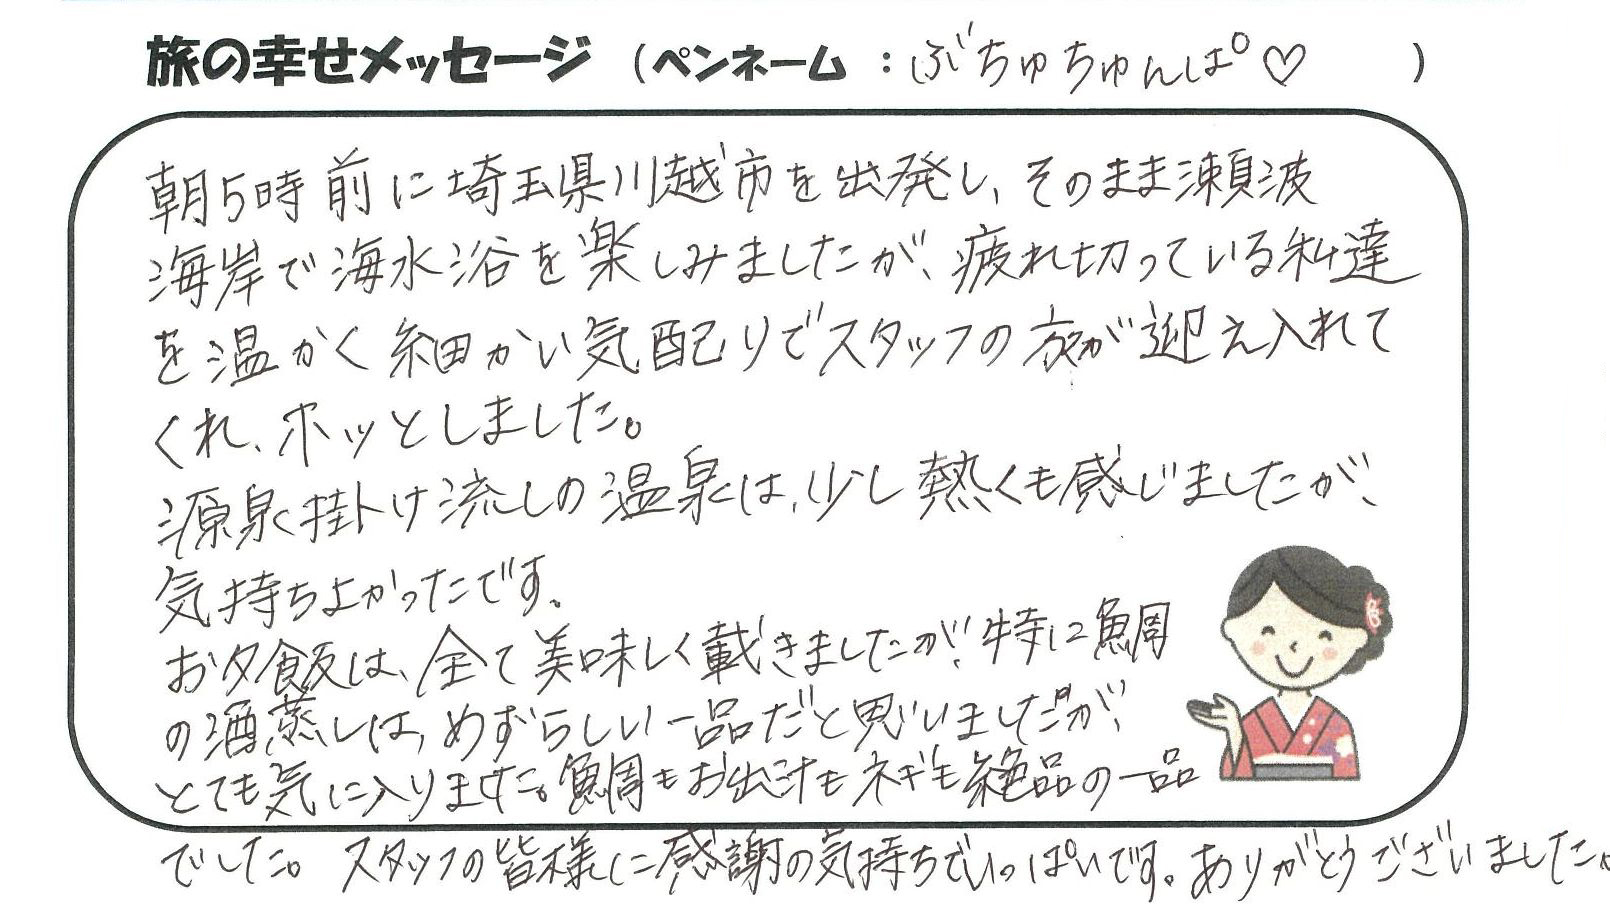 旅の幸せメッセージ （ペンネーム ： ぶちゅちゅんぱ♡ ）
朝5時前に埼玉県川越市を出発し、そのまま瀬波
海岸で海水浴を楽しみましたが、疲れ切っている私達
を温かく細かい気配りでスタッフの方が迎え入れて
くれ、ホッとしました。
源泉掛け流しの温泉は、少し熱くも感じましたが、
気持ちよかったです。
お夕飯は、全て美味しく載きましたが、特に鯛
の酒蒸しは、めずらしい一品だと思いましたが、
とても気に入りました。鯛もお出汁もネギも絶品の一品
でした。スタッフの皆様に感謝の気持ちでいっぱいです。ありがとうございました。